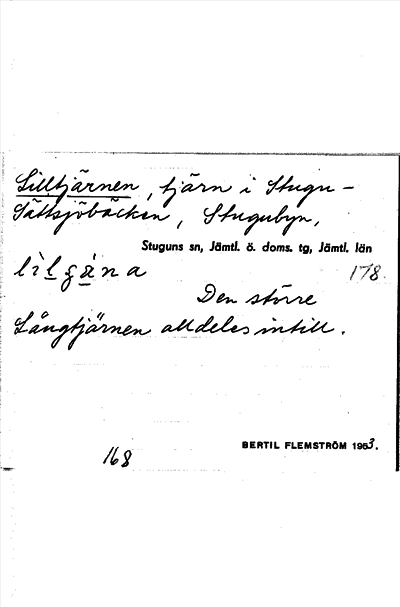 Silltjärnen, tjärn i Stugu-
Sättsjöbäcken, Stugubyn,
Stuguns sn, Jämtl. ö. doms. tg, Jämtl. län
178
Den större
Långtjärnen alldeles intill.
BERTIL FLEMSTRÖM 1953.
168